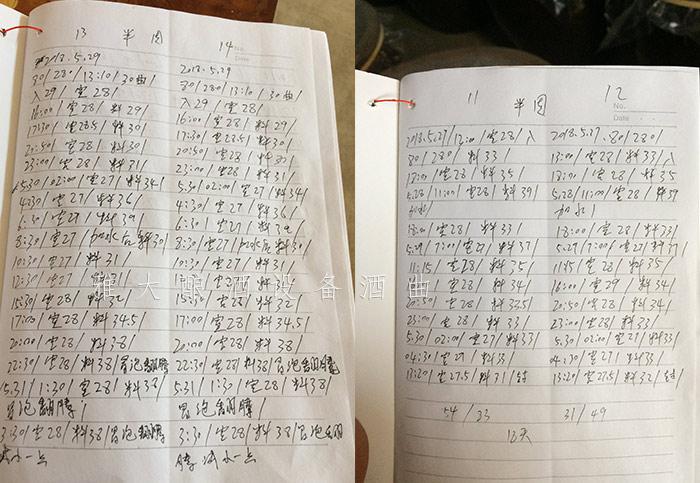 13 半周 14
No.
Date
2018.5.29
30/28°/13:10/30曲
入29/室28/
16:00/室28/料29/
17:30/室28.5/料30/
20:50/室28/料30/
23:00/室28/料31/
5.30/02:00/室27/料34/
4:30/室27/料36/
6:30/室27/料39/
8:30/室27/加水后料30/
10:30/室27/料31/
12:30/室27/料31/
15:30/室28/料32/
17:00/室28/料34.5/
20:00/室28/料38/
22:30/室28/料38/冒泡翻腾
5.31/1:30/室28/料38/
冒泡翻腾/
3:30/室28/料38/冒泡翻腾
减小一点
2018.5.29
30/280/13:10/30曲
入29/室28/
16:00/室28/料29/
17:30/室28.5/料30/
20:50/室28/料30
23:00/室28/料31/
5.30/02:00/室27/料34/
4:30/室27/料36/
6:30/室27/料39/
8:30/室27/加水后料30/
10:30/室27/料31/
室27/
15:30/室28/料32/
17:00/室28/料34.5/
20:00/室28/料38/
22:30/室28/料38/冒泡翻腾
5.31/1:30/室28/料38/
冒泡翻腾/
3:30/室28/料38/冒泡翻
腾减小一点
11 半周 12
No.
Date
2018.5.27/12:00/室28/入
30/280/料33/
18:00/室28/料35/
5.28/11:00/室28/料39/
加水/
18:00/室28/料33/
5.29/7:00/室27/料37/
11:15/室28/料35/
料34/
20:50/室28/料33.5/
23:00/室28/料33/
5.30/02:00/室27/料33/
04:30/室27/料33/
13:20/室27.5/料31/封
54/33
2018.5.27.30/280/
13:00/室28/料33/入
18:00/室28/料35/
5.28/11:00/室28/料39
加水/
18:00/室28/料33/
5.29/7:00/室27/料37/
11:15/室28/料35/
16:00/室29/料34/
20:50/室28/料34/
23:00/室28/料33/
5.30/02:00/室27/料33/
04:30/室27/料33/
13:20/室27.5/料32/封/
31/49
12天
雅大酿酒设备酒曲